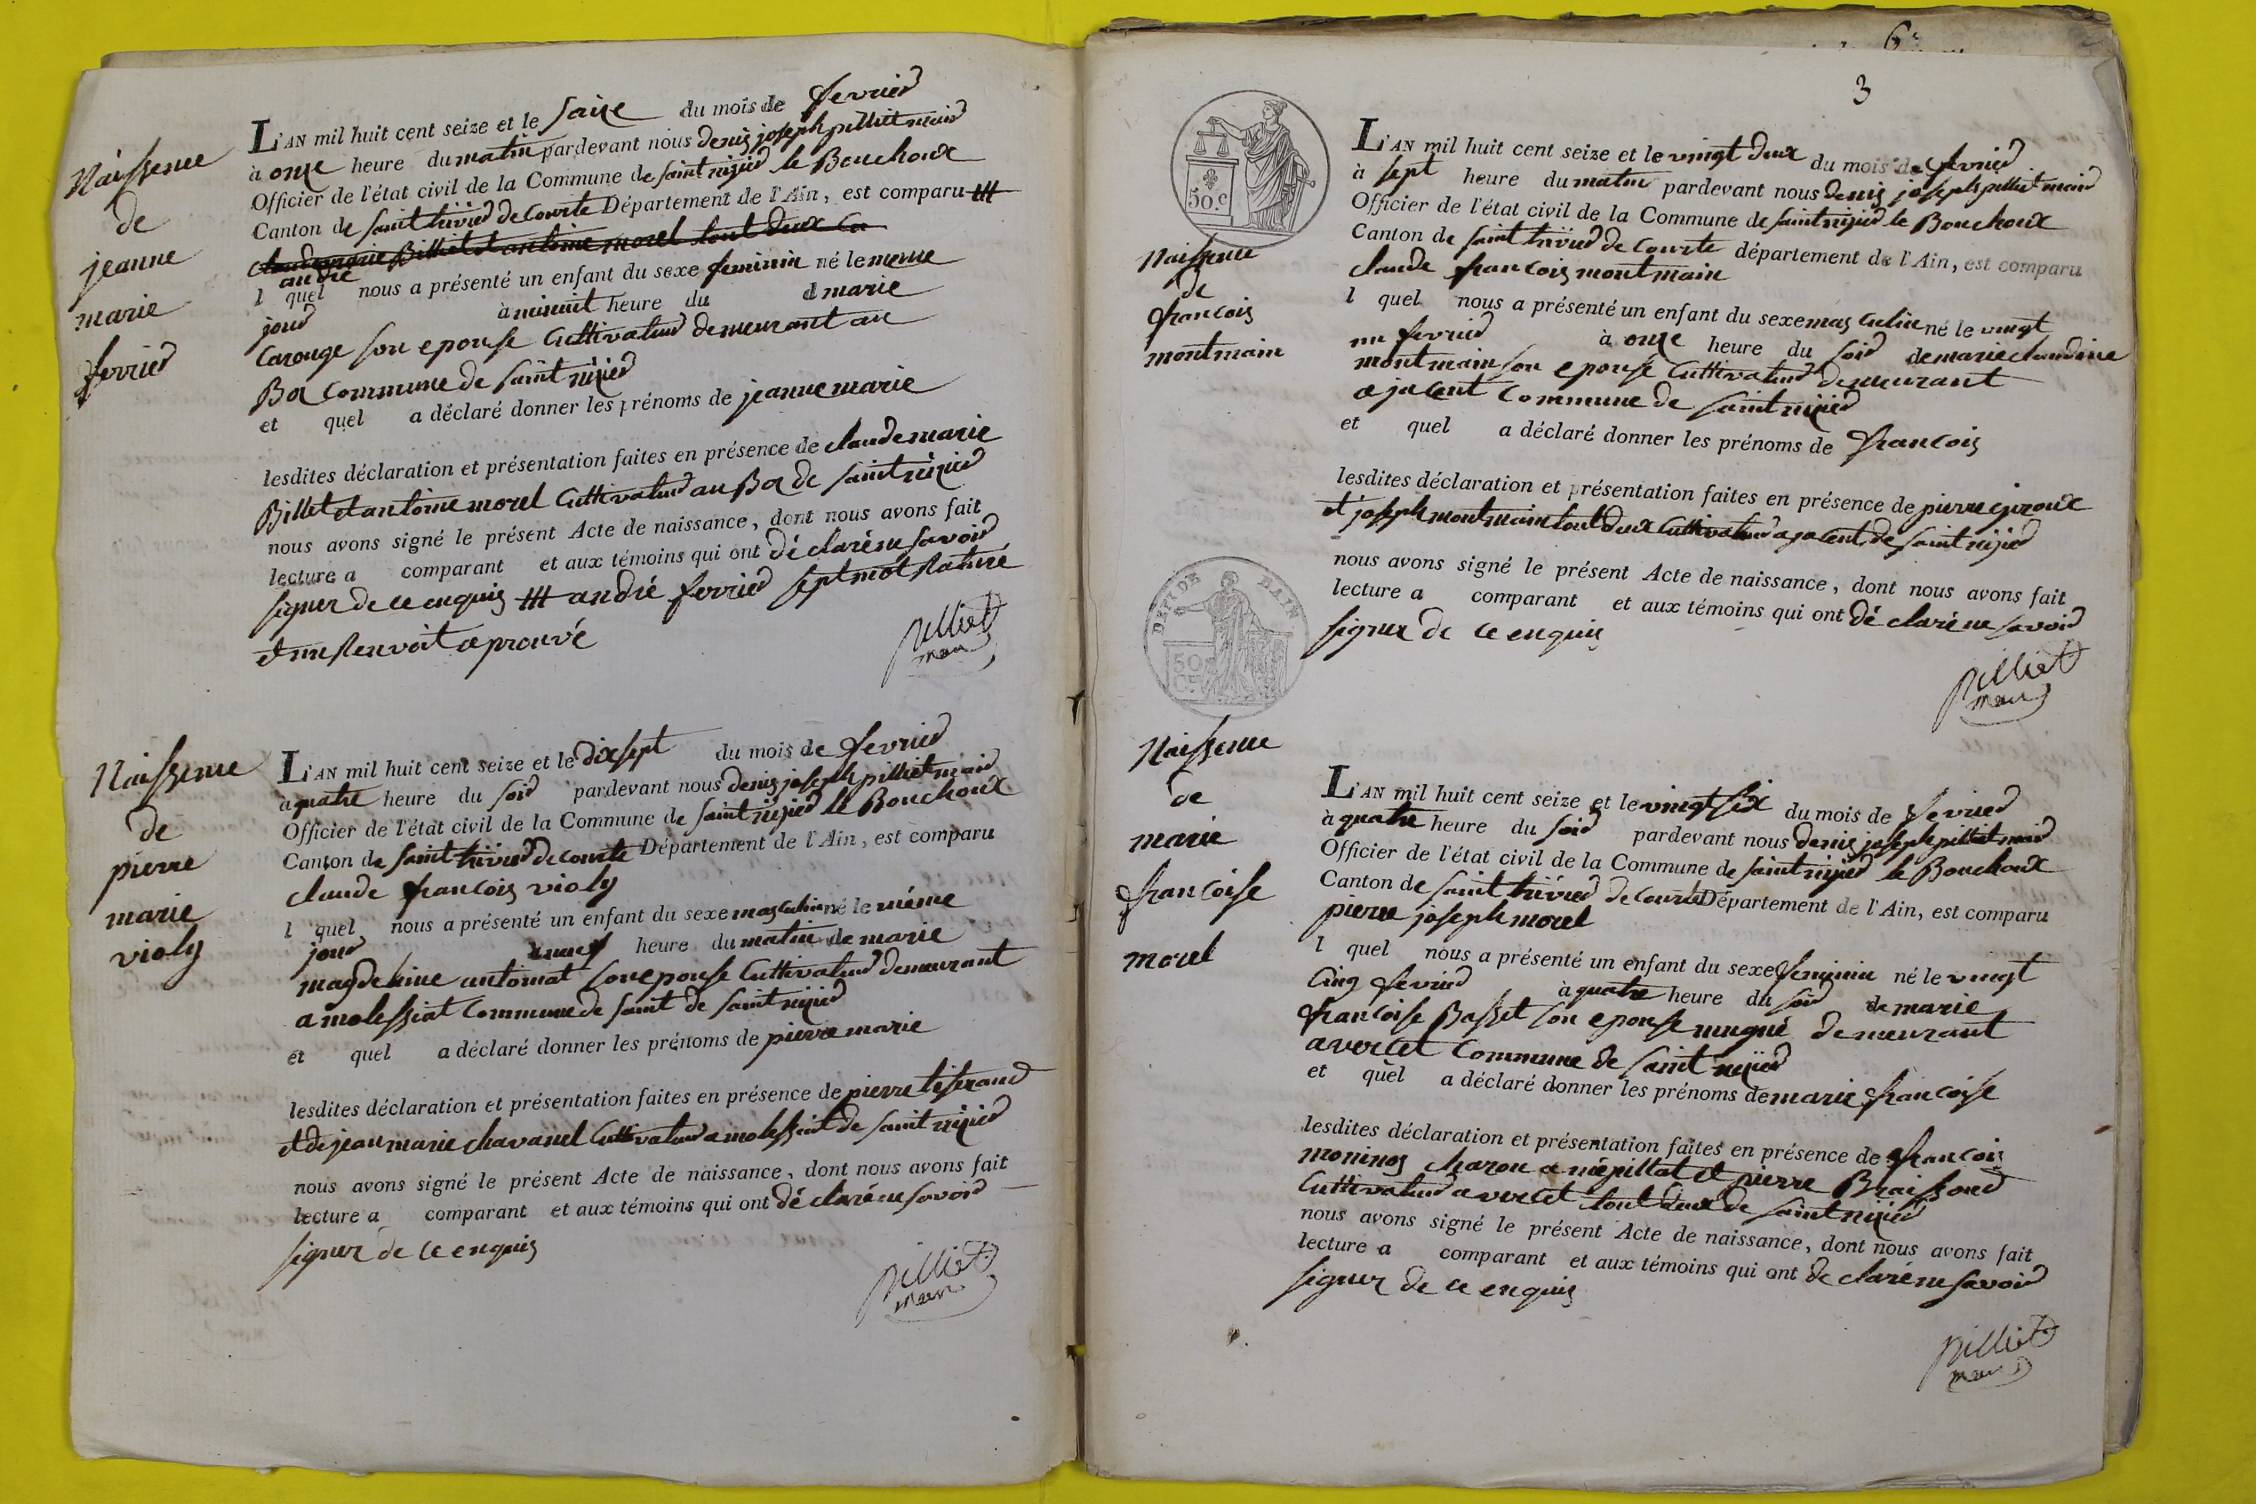 Naissence
de
jeanne
marie
ferrier
L'AN mil huit cent seize et le saize du mois de fevrier
à onze heure du matin pardevant nous denis joseph pilliet maire
Officier de l'état civil de la Commune de saint nizier le Bouchoux
Canton de saint trivier de Courte Département de l'Ain, est comparu ttt
claude marie Billet et antoine morel tout deux cu
andré
l quel nous a présenté un enfant du sexe feminin né le meme
jour à minuit heure du d marie
Carouge son epouse Cultivateur demeurant au
Boz Commune de saint nizier
et quel a déclaré donner les prénoms de jeanne marie
lesdites déclaration et présentation faites en présence de claude marie
Billet et antoine morel Cultivateur au Boz de saint nizier
nous avons signé le présent Acte de naissance, dont nous avons fait
lecture a comparant et aux témoins qui ont dé claré ne savoir
signer de ce enquis ttt andré ferrier sept mot Raturé
et un Renvoit aprouvé
pilliet
maire
Naissence
de
pierre
marie
violy
L'AN mil huit cent seize et le dix sept du mois de fevrier
à quatre heure du soir pardevant nous denis joseph pilliet maire
Officier de l'état civil de la Commune de saint nizier le Bouchoux
Canton de saint trivier de courte Département de l'Ain, est comparu
claude francois violy
l quel nous a présenté un enfant du sexe masculin né le méme
jour heure du matin de marie
magdelaine son epouse Cultivateur demeurant
a molissiat Commune de saint de saint nizier
et quel a déclaré donner les prénoms de pierre marie
lesdites déclaration et présentation faites en présence de pierre tisserand
et de jean marie chavanel Cultivateur a molissiat de saint nizier
nous avons signé le présent Acte de naissance, dont nous avons fait
lecture a comparant et aux témoins qui ont dé claré ne savoir
signer de ce enquis
pilliet
maire
3
50.c
Naissence
de
francois
montmain
L'AN mil huit cent seize et le vingt deux du mois de fevrier
à sept heure du matin pardevant nous denis joseph pilliet maire
Officier de l'état civil de la Commune de saint nizier le Bouchoux
Canton de saint trivier de Courte département de l'Ain, est comparu
claude francois montmain
l quel nous a présenté un enfant du sexe mas culin né le vingt
un fevrier à onze heure du soir de marie claudine
montmain son epouse Cultivateur demeurant
a jacent Commune de saint nizier
et quel a déclaré donner les prénoms de francois
lesdites déclaration et présentation faites en présence de pierre giroux
et joseph montmain tout deux Cultivateur a jacent de saint nizier
nous avons signé le présent Acte de naissance, dont nous avons fait
lecture a comparant et aux témoins qui ont dé claré ne savoir
signer de ce enquis
pilliet
maire
DEP. DE L'AIN
50
C.
Naissence
de
marie
francoise
morel
L'AN mil huit cent seize et le vingt six du mois de fevrier
à quatre heure du soir pardevant nous denis joseph pilliet maire
Officier de l'état civil de la Commune de saint nizier le Bouchoux
Canton de saint trivier de Courte Département de l'Ain, est comparu
pierre joseph morel
l quel nous a présenté un enfant du sexe feminin né le vingt
cinq fevrier à quatre heure du soir de marie
francoise Basset son epouse demeurant
a vercet Commune de saint nizier
et quel a déclaré donner les prénoms de marie francoise
lesdites déclaration et présentation faites en présence de francois
charon a et pierre Braissoud
Cultivateur a vercet tout deux de saint nizier
nous avons signé le présent Acte de naissance, dont nous avons fait
lecture a comparant et aux témoins qui ont de claré ne savoir
signer de ce enquis
pilliet
maire